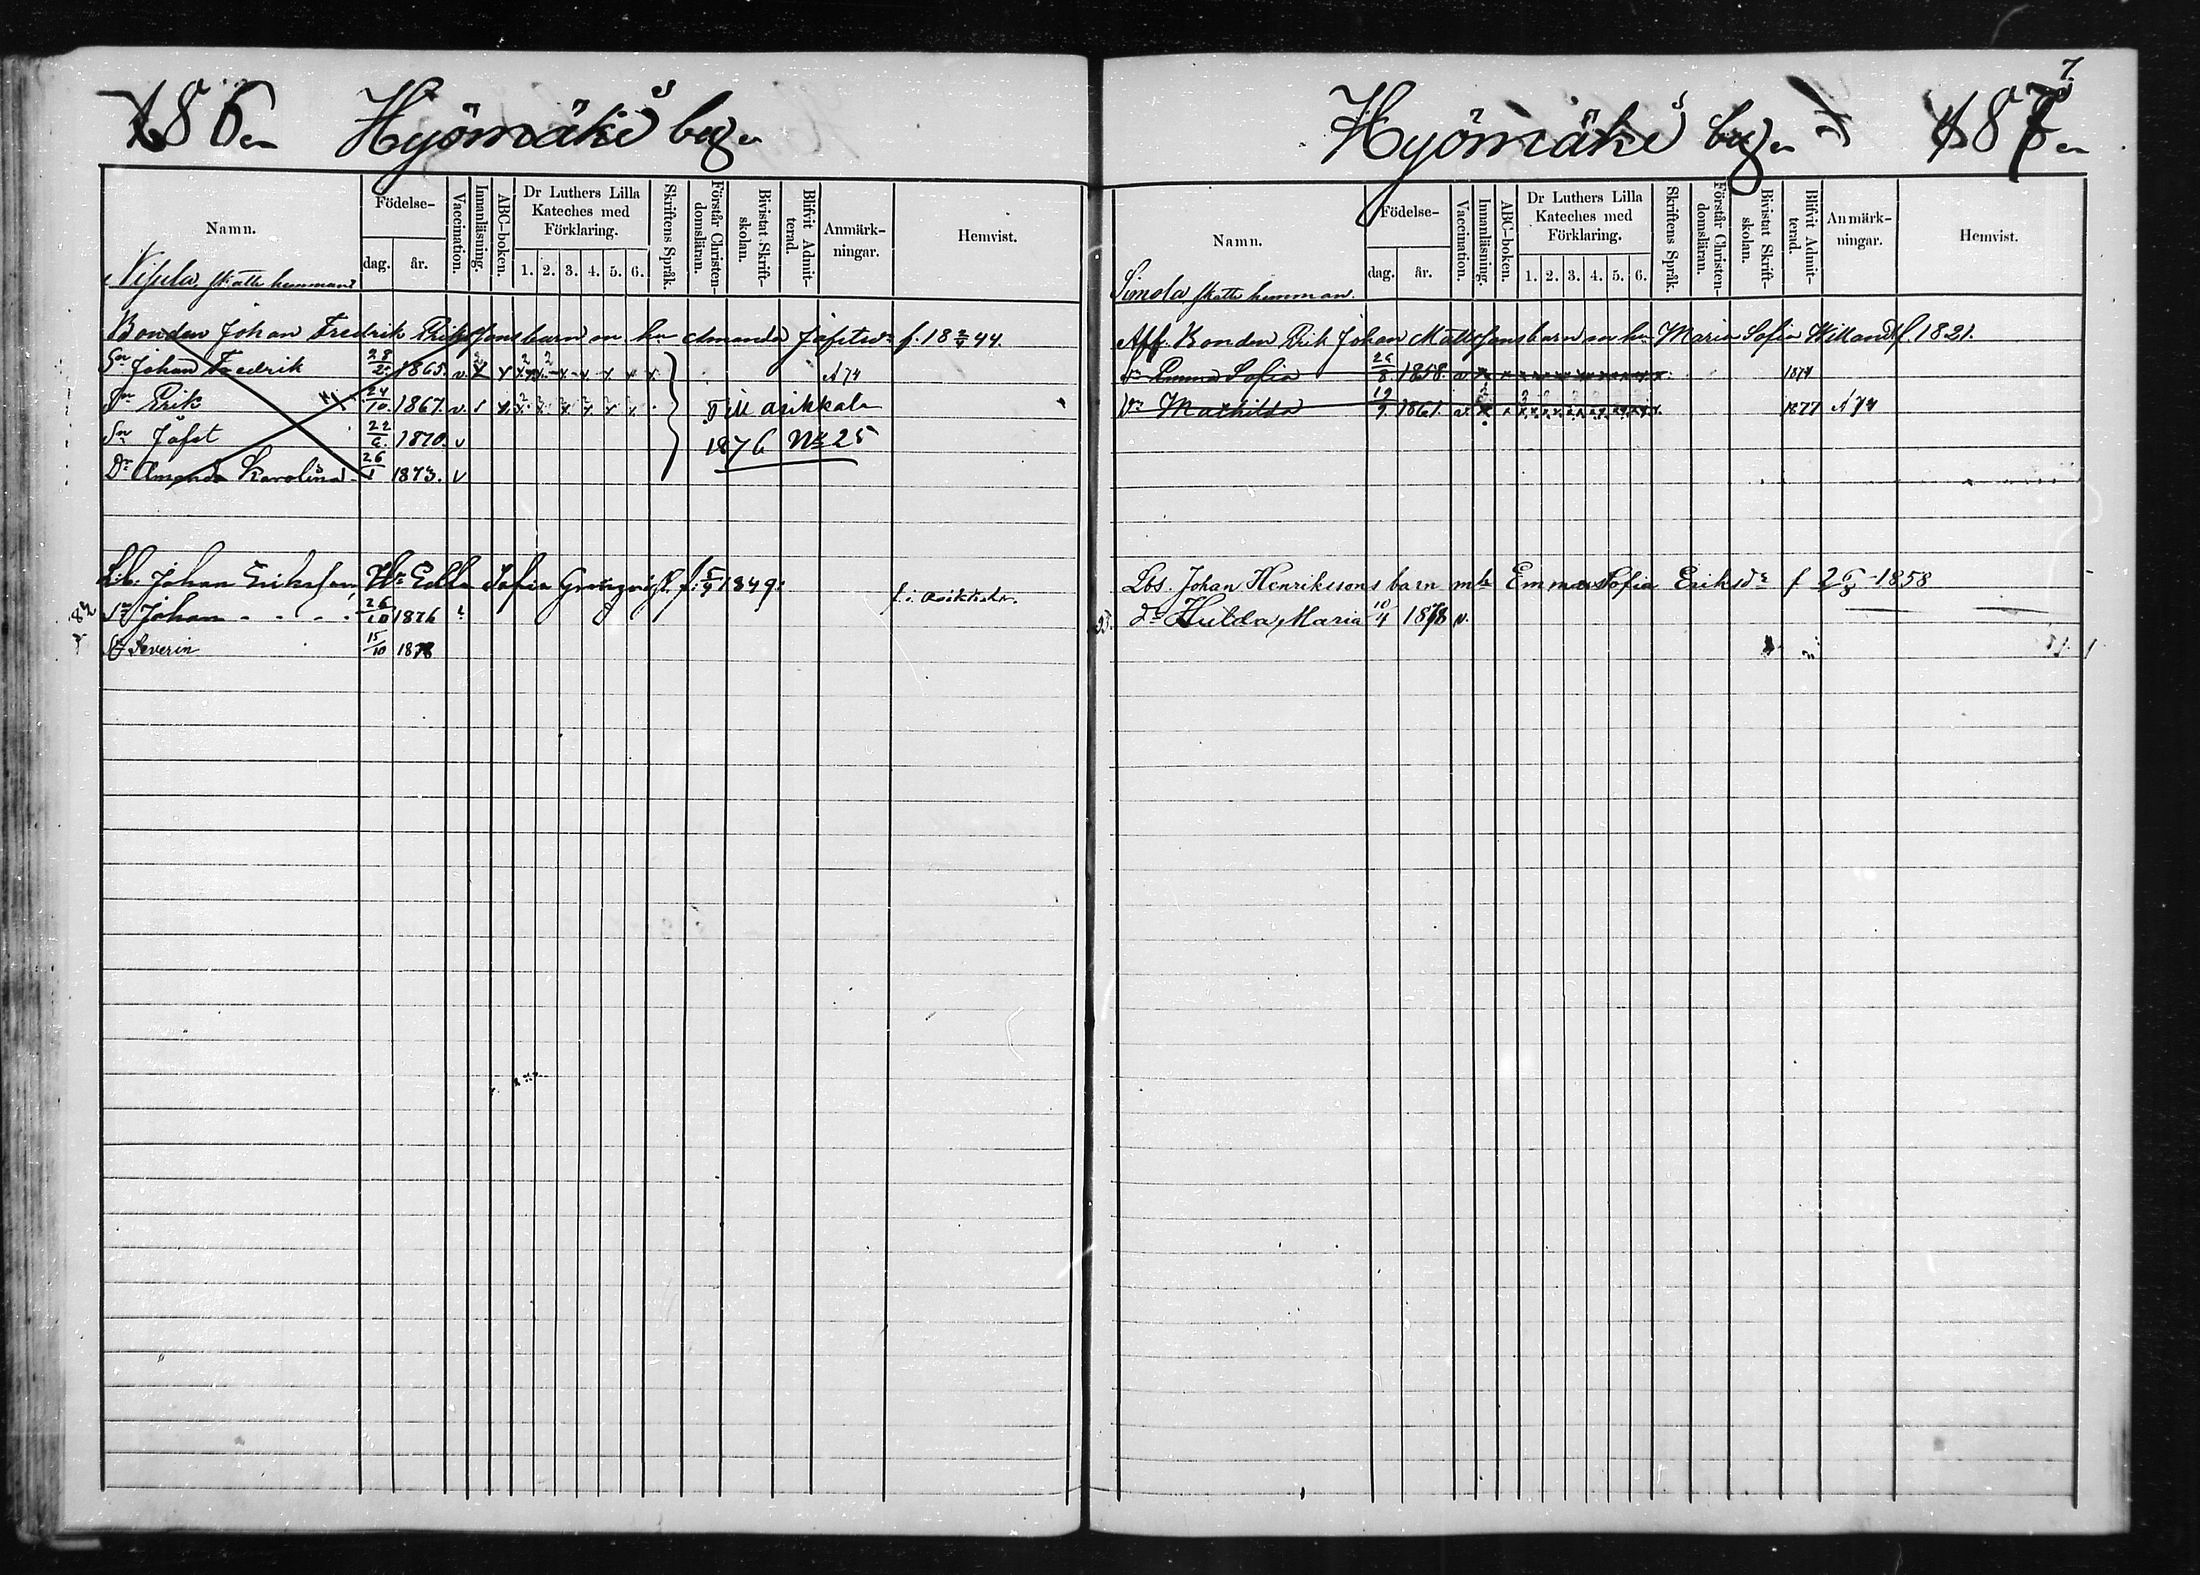 186. Hyömäki by.
Namn. Födelse- dag. år. Vaccination. Innanläsning. ABC-boken. Dr Luthers Lilla Kateches med Förklaring. 1. 2. 3. 4. 5. 6. Skriftens Språk. Förstår Christendomsläran. Bivistat Skriftskolan. Blifvit Admitterad. Anmärkningar. Hemvist.
skatte hemman
Bonden Johan Fredrik barn m. h. Amanda f. 18 2/4 44.
Sn Johan Fredrik 28/2 1865. v. A 74
Sn Erik 24/10 1867. v. Till Asikkala
Sn Jafet 22/6 1870. v 1876 No 25
Dr Amanda Karolina 26/1 1873. v
Johan Eriksson, Edla Sofia f. 5/4 1849.
f. i Asikkala.
82 Sn Johan 26/10 1876
Severin 15/10 1878
Hyömäki by. 187. 7.
Namn. Födelse- dag. år. Vaccination. Innanläsning. ABC-boken. Dr Luthers Lilla Kateches med Förklaring. 1. 2. 3. 4. 5. 6. Skriftens Språk. Förstår Christendomsläran. Bivistat Skriftskolan. Blifvit Admitterad. Anmärkningar. Hemvist.
Simola skatte hemman.
Aff. Bonden Erik Johan Mattssons barn m h. Maria Sofia f. 1821.
Dr Emma Sofia 26/8 1858. 1874
Dr Mathilda 19/9 1861. 1877 A 74
Lbs. Johan Henrikssons barn mh Emma Sofia Eriksdr f 26/8 1858
93. Dr Hulda Maria 10/4 1878 v.